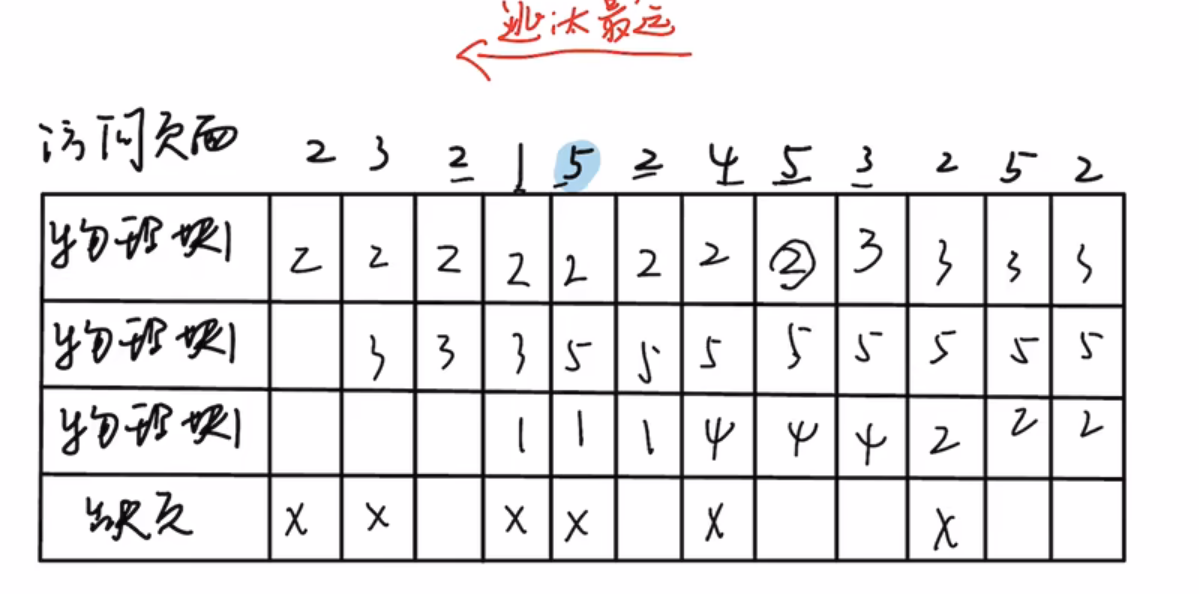 逃汰最远
访问页面 2 3 2 1 5 2 4 5 3 2 5 2
物理块1 2 2 2 2 2 2 2 2 3 3 3 3
物理块1 3 3 3 5 5 5 5 5 5 5 5
物理块1 1 1 1 4 4 4 2 2 2
缺页 X X X X X X